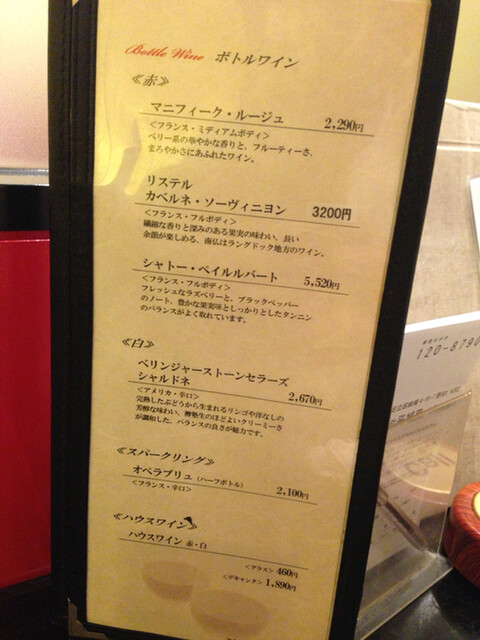 Bottle Wine ボトルワイン
≪赤≫
マニフィーク・ルージュ 2,290円
<フランス・ミディアムボディ>
ベリー系の華やかな香りと、フルーティーさ、
まろやかさにあふれたワイン。
リステル
カベルネ・ソーヴィニヨン 3200円
<フランス・フルボディ>
繊細な香りと深みのある果実の味わい、長い
余韻が楽しめる、南仏はラングドック地方のワイン。
シャトー・ペイルルバート 5,520円
<フランス・フルボディ>
フレッシュなラズベリーと、ブラックペッパー
のノート、豊かな果実味としっかりとしたタンニン
のバランスがよく取れています。
≪白≫
ベリンジャーストーンセラーズ
シャルドネ 2,670円
<アメリカ・辛口>
完熟したぶどうから生まれるリンゴや洋なしの
芳醇な味わい、樽熟生のほどよいクリーミーさ
が調和した、バランスの良さが魅力です。
≪スパークリング≫
オペラブリュ (ハーフボトル) 2,100円
<フランス・辛口>
≪ハウスワイン≫
ハウスワイン 赤・白
<グラス> 460円
<デキャンタ> 1,890円
120-8790